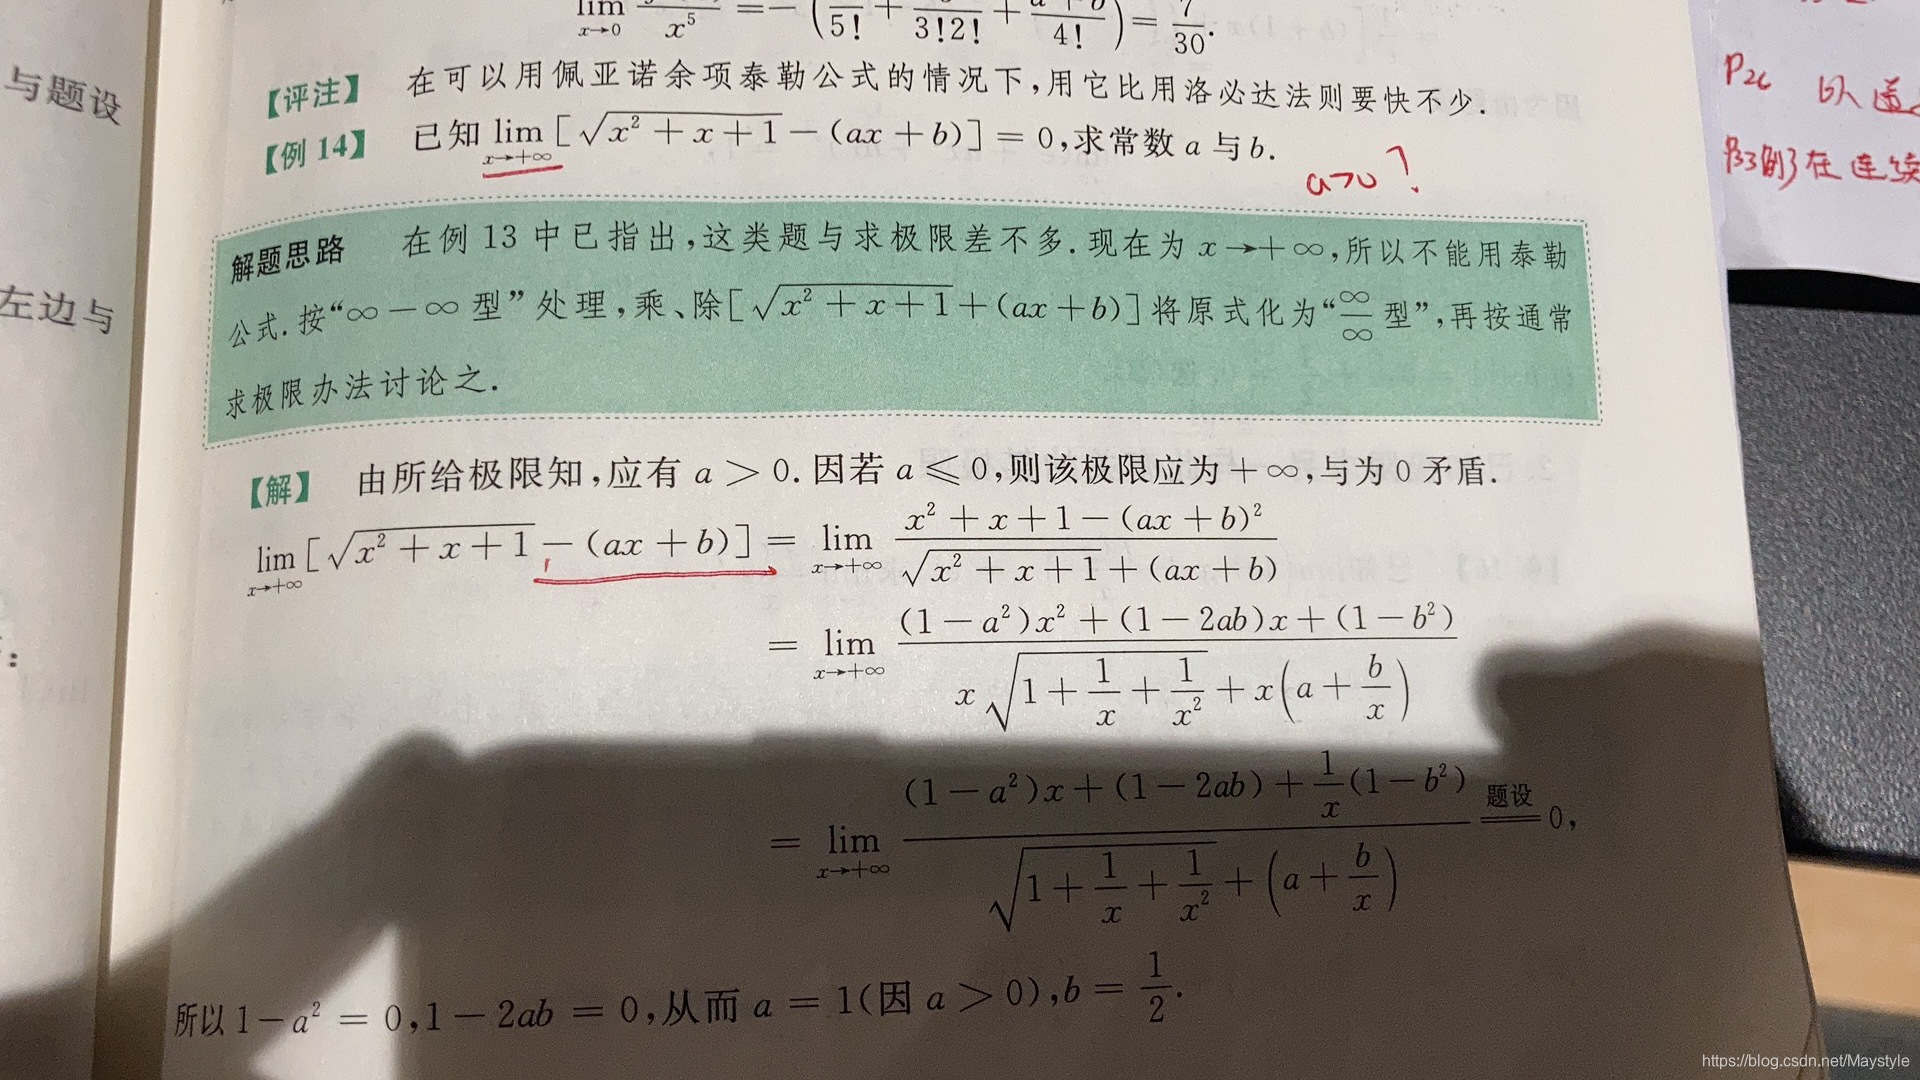 lim x→0 / x⁵ = −(/5! + /3!2! + a+b/4!) = 7/30.
【评注】 在可以用佩亚诺余项泰勒公式的情况下,用它比用洛必达法则要快不少.
【例 14】 已知 lim x→+∞ [√(x² + x + 1) − (ax + b)] = 0,求常数 a 与 b.
a>0 ?
解题思路 在例 13 中已指出,这类题与求极限差不多.现在为 x→+∞,所以不能用泰勒
公式.按“∞ − ∞ 型”处理,乘、除[√(x² + x + 1) + (ax + b)]将原式化为“∞/∞ 型”,再按通常
求极限办法讨论之.
【解】 由所给极限知,应有 a > 0.因若 a ⩽ 0,则该极限应为 +∞,与为 0 矛盾.
lim x→+∞ [√(x² + x + 1) − (ax + b)] = lim x→+∞ (x² + x + 1 − (ax + b)²) / (√(x² + x + 1) + (ax + b))
= lim x→+∞ ((1 − a²)x² + (1 − 2ab)x + (1 − b²)) / (x√(1 + 1/x + 1/x²) + x(a + b/x))
= lim x→+∞ ((1 − a²)x + (1 − 2ab) + 1/x(1 − b²)) / (√(1 + 1/x + 1/x²) + (a + b/x)) 题设 = 0,
所以 1 − a² = 0,1 − 2ab = 0,从而 a = 1(因 a > 0),b = 1/2.
与题设
左边与
:
P26
在连续
https://blog.csdn.net/Maystyle